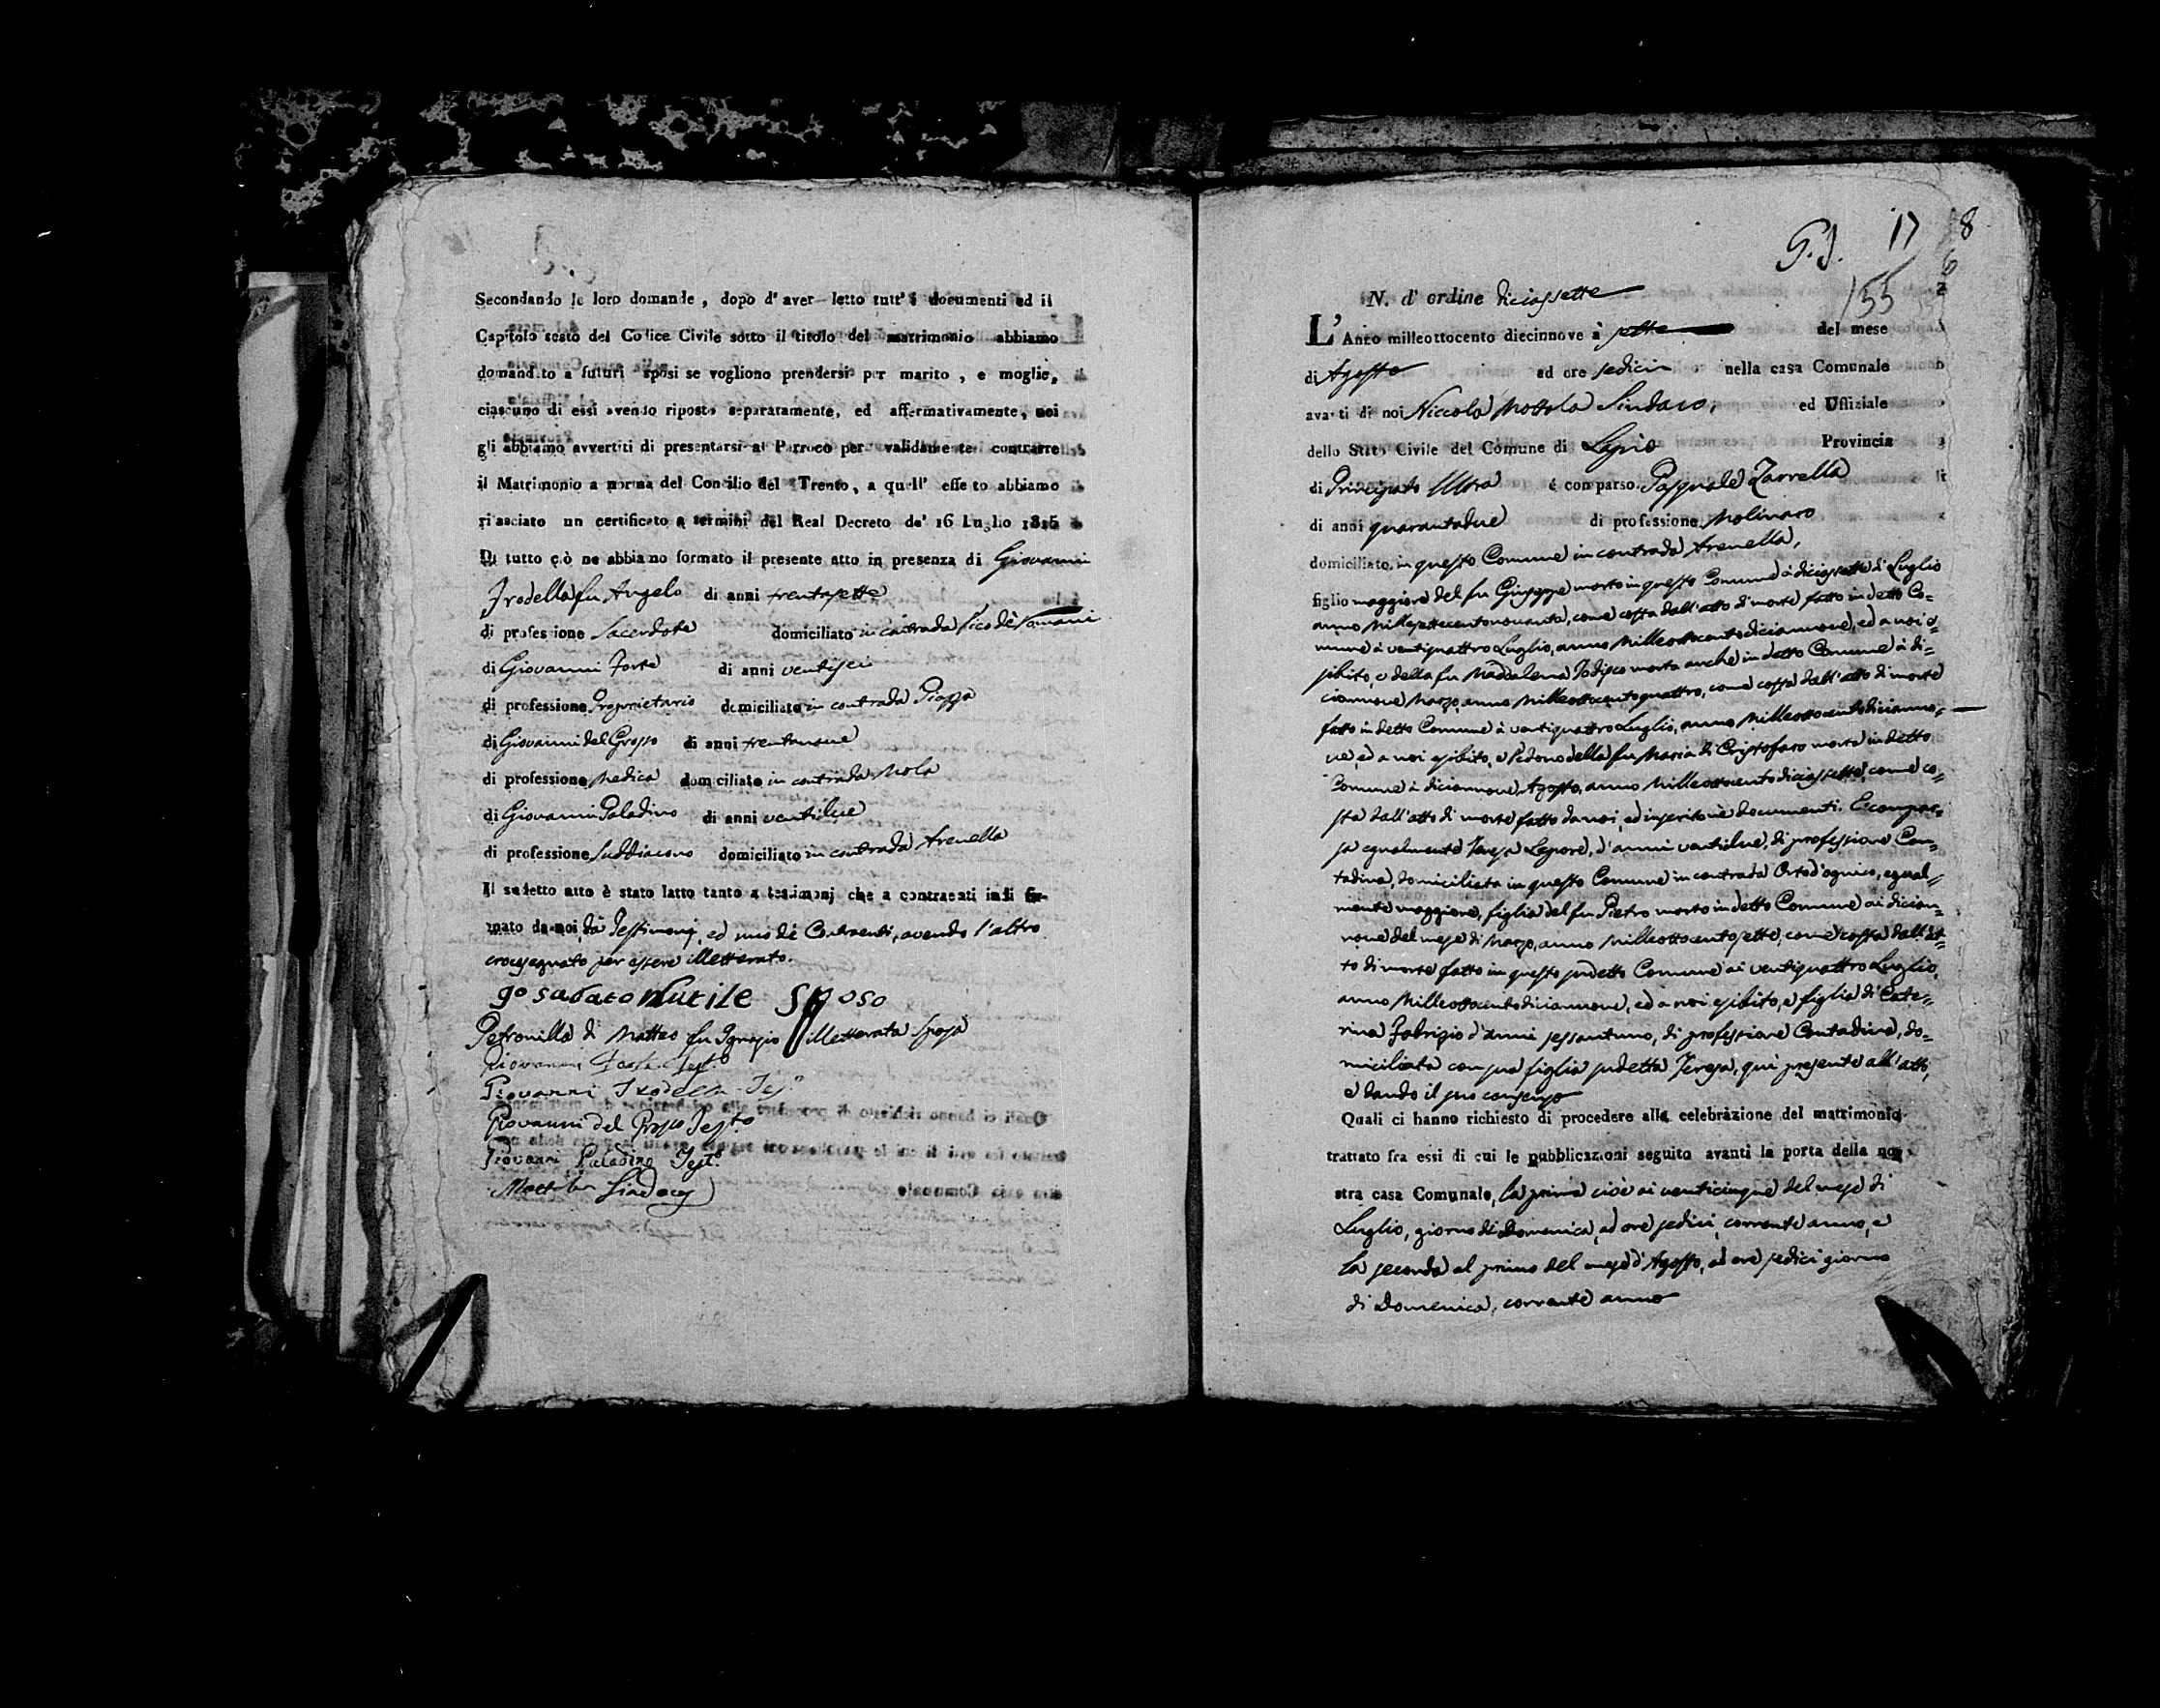 Secondando le loro domande, dopo d' aver letto tutt' i documenti ed il
Capitolo sesto del Codice Civile sotto il titolo del matrimonio abbiamo
domandato a futuri sposi se vogliono prendersi per marito, e moglie,
ciascuno di essi avendo riposto separatamente, ed affermativamente, noi
gli abbiamo avvertiti di presentarsi al Parroco per validamente contrarre
il Matrimonio a norma del Concilio del Trento, a quell' effetto abbiamo
rilasciato un certificato a termini del Real Decreto de' 16 Luglio 1816
Di tutto ciò ne abbiamo formato il presente atto in presenza di Giovanni
Trodella fu Angelo di anni trentasette
di professione Sacerdote domiciliato in contrada Vico de
di Giovanni Forte di anni ventisei
di professione Proprietario domiciliato in contrada Piazza
di Giovanni del Grosso di anni trentanove
di professione Medico domiciliato in contrada Mola
di Giovanni Paladino di anni ventidue
di professione Suddiacono domiciliato in contrada Arenella
Il sudetto atto è stato latto tanto a testimonj che a contraenti indi fir-
mato da noi, da Testimonj, ed uno de Contraenti, avendo l'altro
crocesegnato per essere illetterato.
Io sabato Nutile Sposo
Petronilla di Matteo fu Ignazio illetterata Sposa
Giovanni Forte Test.o
Giovanni Trodella Tes.o
Giovanni del Grosso Test.o
Giovanni Paladino Test.o
Mottola Sindaco
17 8
155
N. d' ordine diciassette
L' Anno milleottocento diecinnove à sette del mese
di Agosto ad ore sedici nella casa Comunale
avanti di noi Niccola Mottola Sindaco, ed Uffiziale
dello Stato Civile del Comune di Lapio Provincia
di Principato Ultra è comparso Pasquale Zarrella
di anni quarantadue di professione Molinaro
domiciliato in questo Comune in contrada Arenella,
figlio maggiore del fu Giuseppe morto in questo Comune à diciassette di Luglio
anno Millesettecentonovanta, come costa dall'atto di morte fatto in detto Co=
mune à ventiquattro Luglio, anno Milleottocentodiciannove, ed a noi e=
sibito, e della fu Maddalena Todisco morta anche in detto Comune à di=
ciannove Marzo, anno Milleottocentoquattro, come costa dall'atto di morte
fatto in detto Comune à ventiquattro Luglio, anno Milleottocentodicianno=
ve, ed a noi esibito, e Vedovo della fu Maria di Cristofaro morta in detto
Comune à diciannove Agosto, anno Milleottocentodiciassette, come co=
sta dall'atto di morte fatto da noi, ed inserito ne documenti. E compar=
sa egualmente Teresa Lepore, d'anni ventidue, di professione Con=
tadina, domiciliata in questo Comune in contrada Orto d'ognico, egual=
mente maggiore, figlia del fu Pietro morto in detto Comune ai dician=
nove del mese di Marzo, anno Milleottocentosette, come costa dall'At=
to di morte fatto in questo sudetto Comune ai ventiquattro Luglio,
anno Milleottocentodiciannove, ed a noi esibito, e figlia di Cate=
rina Fabrizio d'anni sessantuno, di professione Contadina, do=
miciliata con sua figlia sudetta Teresa, quì presente all'atto,
e dando il suo consenso
Quali ci hanno richiesto di procedere alla celebrazione del matrimonio
trattato fra essi di cui le pubblicazioni seguito avanti la porta della no-
stra casa Comunale, la prima cioè ai venticinque del mese di
Luglio, giorno di Domenica, ad ore sedici, corrente anno, e
la seconda al primo del mese d'Agosto, ad ore sedici giorno
di Domenica, corrente anno